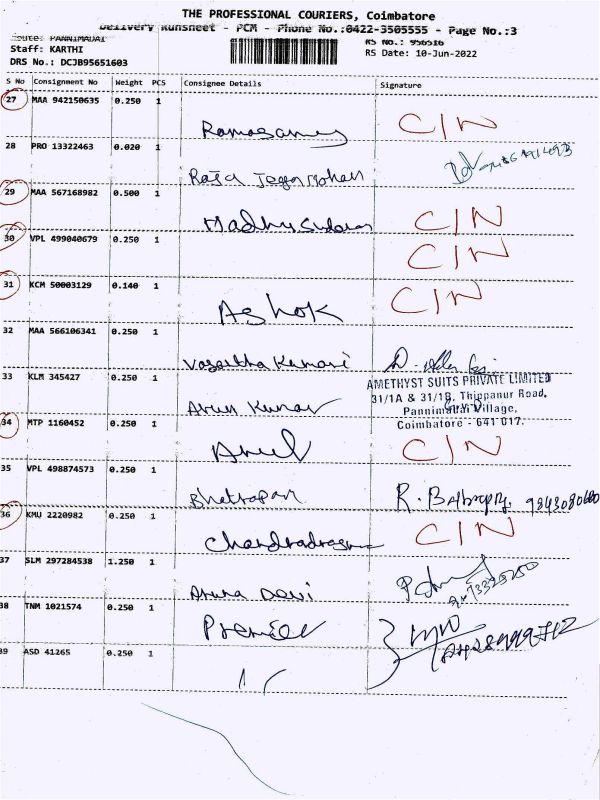 THE PROFESSIONAL COURIERS, Coimbatore
Delivery Runsheet - PCM - Phone No.:0422-3505555 - Page No.:3
Route: PANNIMADAI
Staff: KARTHI
DRS No.: DCJB95651603
RS No.: 956516
RS Date: 10-Jun-2022
S No Consignment No Weight PCS Consignee Details Signature
27 MAA 942150635 0.250 1
Ramasamy C/N
28 PRO 13322463 0.020 1
Raja Jegan Mohan
29 MAA 567168982 0.500 1
Madhusudanan C/N
30 VPL 499040679 0.250 1 C/N
31 KCM 50003129 0.140 1 C/N
Ashok
32 MAA 566106341 0.250 1
Vasantha Kumari
33 KLM 345427 0.250 1
Arun Kumar
AMETHYST SUITS PRIVATE LIMITED
31/1A & 31/1B, Thippanur Road,
Pannimadai Village,
Coimbatore - 641 017.
34 MTP 1160452 0.250 1
Arul C/N
35 VPL 498874573 0.250 1
R. 9843080600
36 KMU 2220982 0.250 1 C/N
37 SLM 297284538 1.250 1
Aruna Devi
38 TNM 1021574 0.250 1
Premier
39 ASD 41265 0.250 1